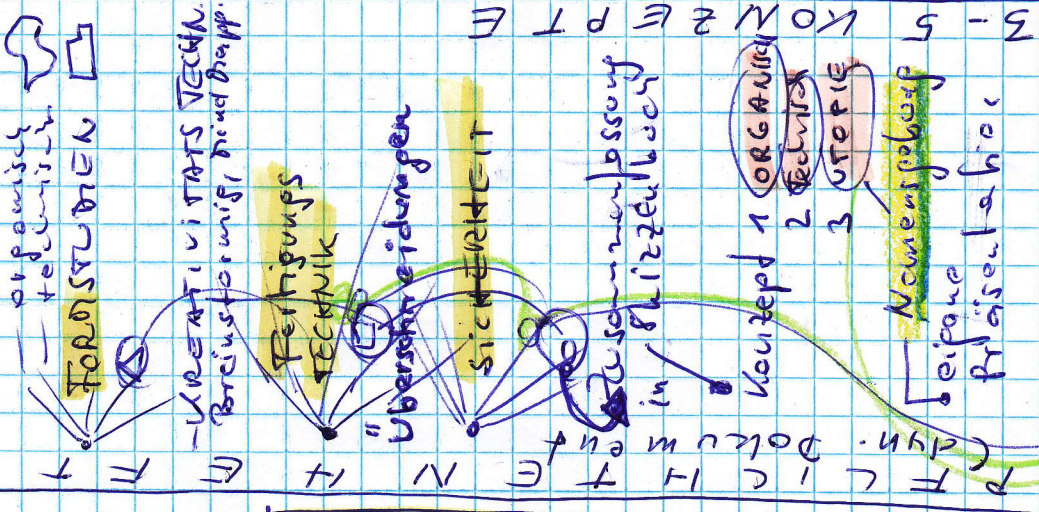 3-5 KONZEPTE
organisch
technisch
FORMSTUDIEN
-KREATIVITÄTS TECHN.
Breinstorming, Mind Mapp.
Fertigungs
TECHNIK
Überschneidungen
SICHERHEIT
Zusammenfassung
in Skizzenbuch
Konzept 1 ORGANISCH
2 Technisch
3 UTOPIE
Namensgebung
eigene
Präsentation
(dyn. Dokument
PFLICHTENHEFT